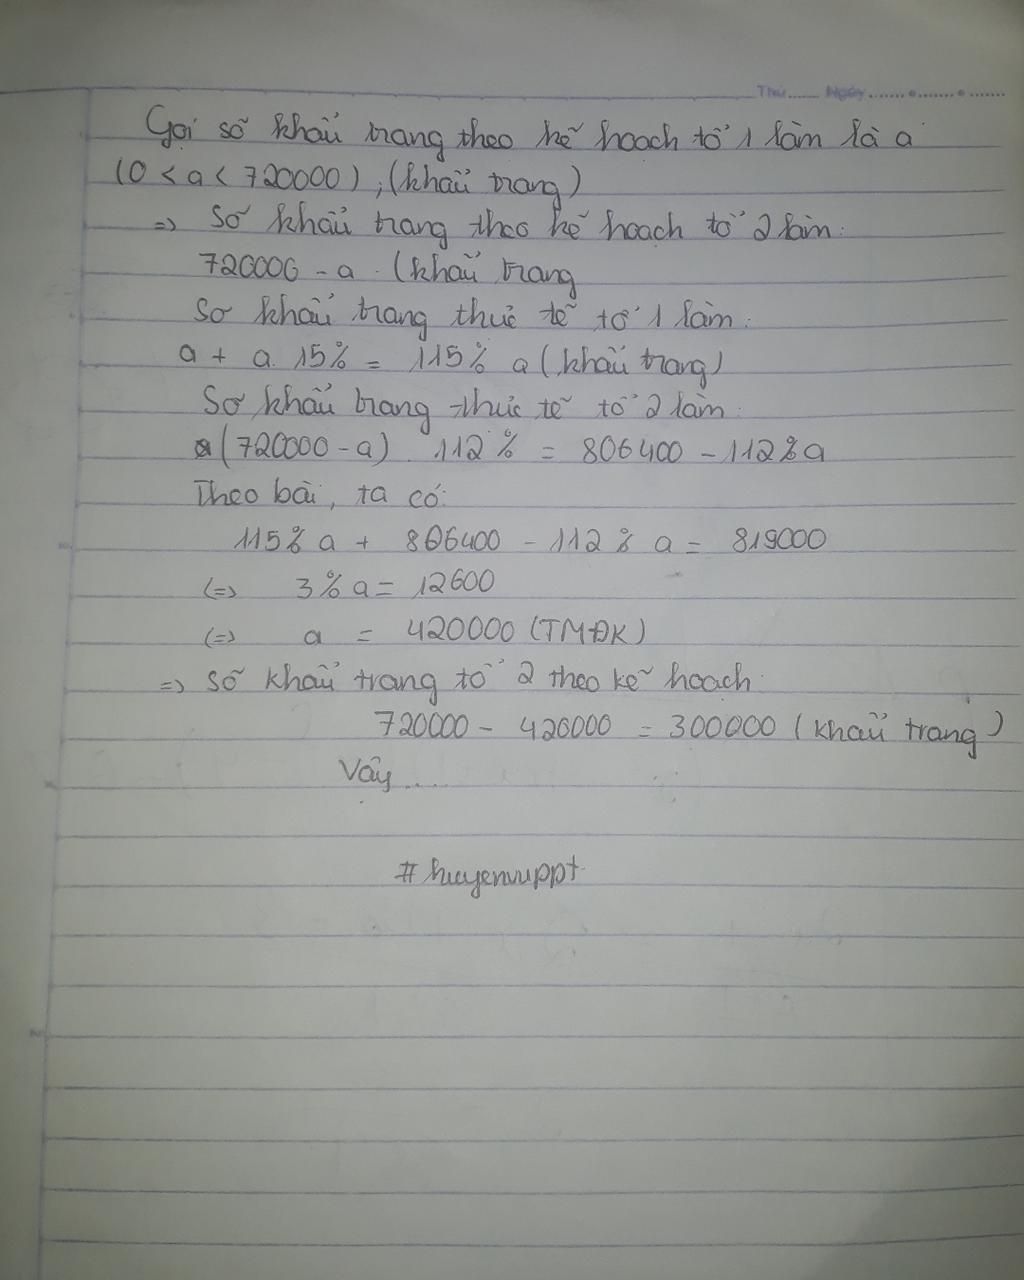 Thứ...... Ngày ........•........•........
Gọi số khẩu trang theo kế hoạch tổ 1 làm là a
(0 < a < 720000), (khẩu trang)
=> Số khẩu trang theo kế hoạch tổ 2 làm:
720000 - a (khẩu trang
Số khẩu trang thực tế tổ 1 làm:
a + a. 15% = 115% a (khẩu trang)
Số khẩu trang thực tế tổ 2 làm
(720000 - a). 112% = 806400 - 112% a
Theo bài, ta có:
115% a + 806400 - 112% a = 819000
(=) 3% a = 12600
(=) a = 420000 (TMĐK)
=> Số khẩu trang tổ 2 theo kế hoạch:
720000 - 420000 = 300000 (khẩu trang)
Vậy....
#huyenvuppt